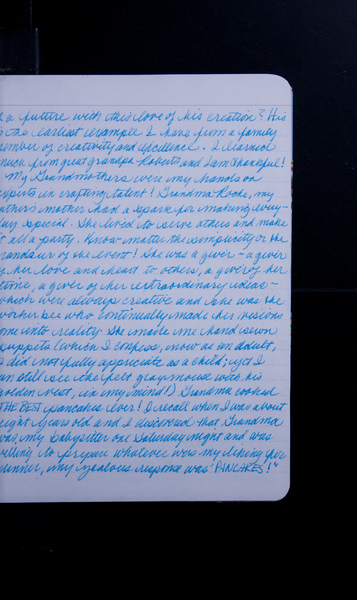 a future with this love of his creation? His
the earliest example I have from a family
member of creativity and excellence. I learned
much from great grandpa Roberts and I am thankful!
My Grandmothers were my hands on
experts in crafting talent! Grandma Rocke, my
father's mother had a spark for making every-
day special. She lived to serve others and make
it all a party. Know matter the simplicity or the
grandeur of the event! She was a giver - a giver
of her love and heart to others, a giver of her
time, a giver of her extraordinary ideas -
which were always creative and she was the
worker bee who continually made her visions
come into reality. She made me hand sewn
puppets (which I confess, now as an adult,
I did not fully appreciate as a child; yet I
can still see the felt gray mouse with his
golden vest, in my mind!) Grandma cooked
THE BEST pancakes ever! I recall when I was about
eight years old and I discovered that Grandma
was my babysitter one Saturday night and was
willing to prepare whatever was my liking for
dinner, my zealous response was "PANCAKES!"